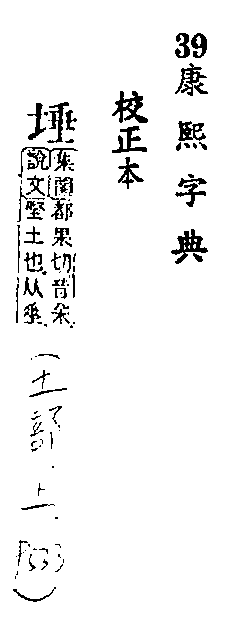 39康熙字典
校正本
埵
集韻都果切音朵
說文堅土也从
(土部.上.